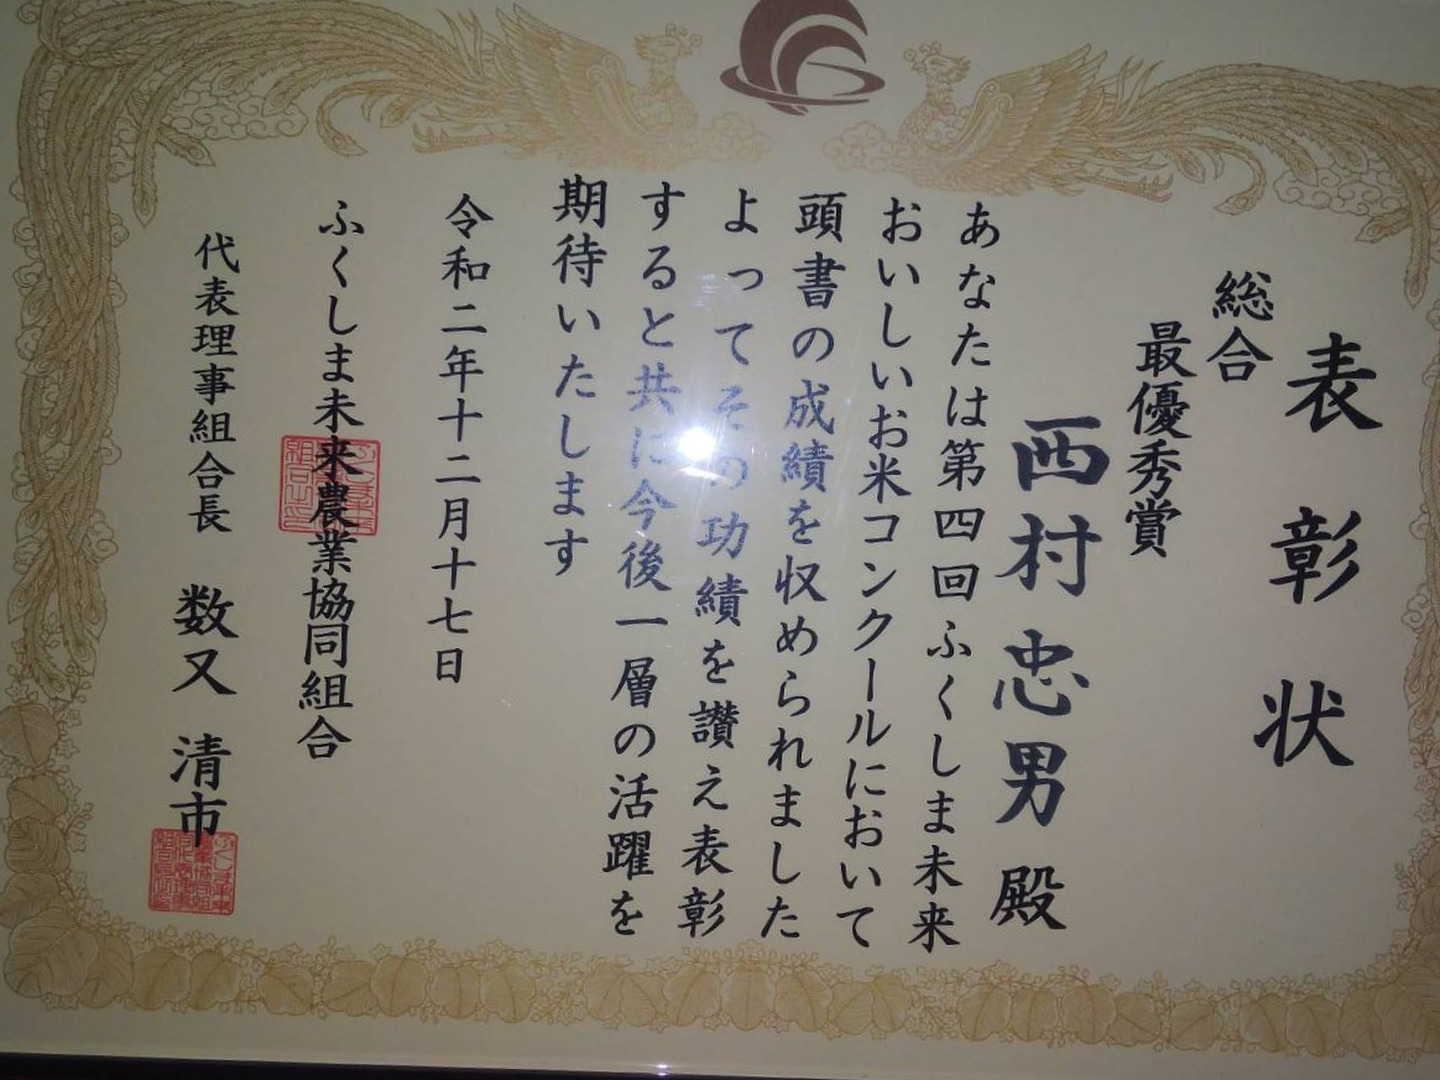 表彰状
総合
最優秀賞
西村忠男殿
あなたは第四回ふくしま未来
おいしいお米コンクールにおいて
頭書の成績を収められました
よってその功績を讃え表彰
すると共に今後一層の活躍を
期待いたします
令和二年十二月十七日
ふくしま未来農業協同組合
代表理事組合長 数又 清市